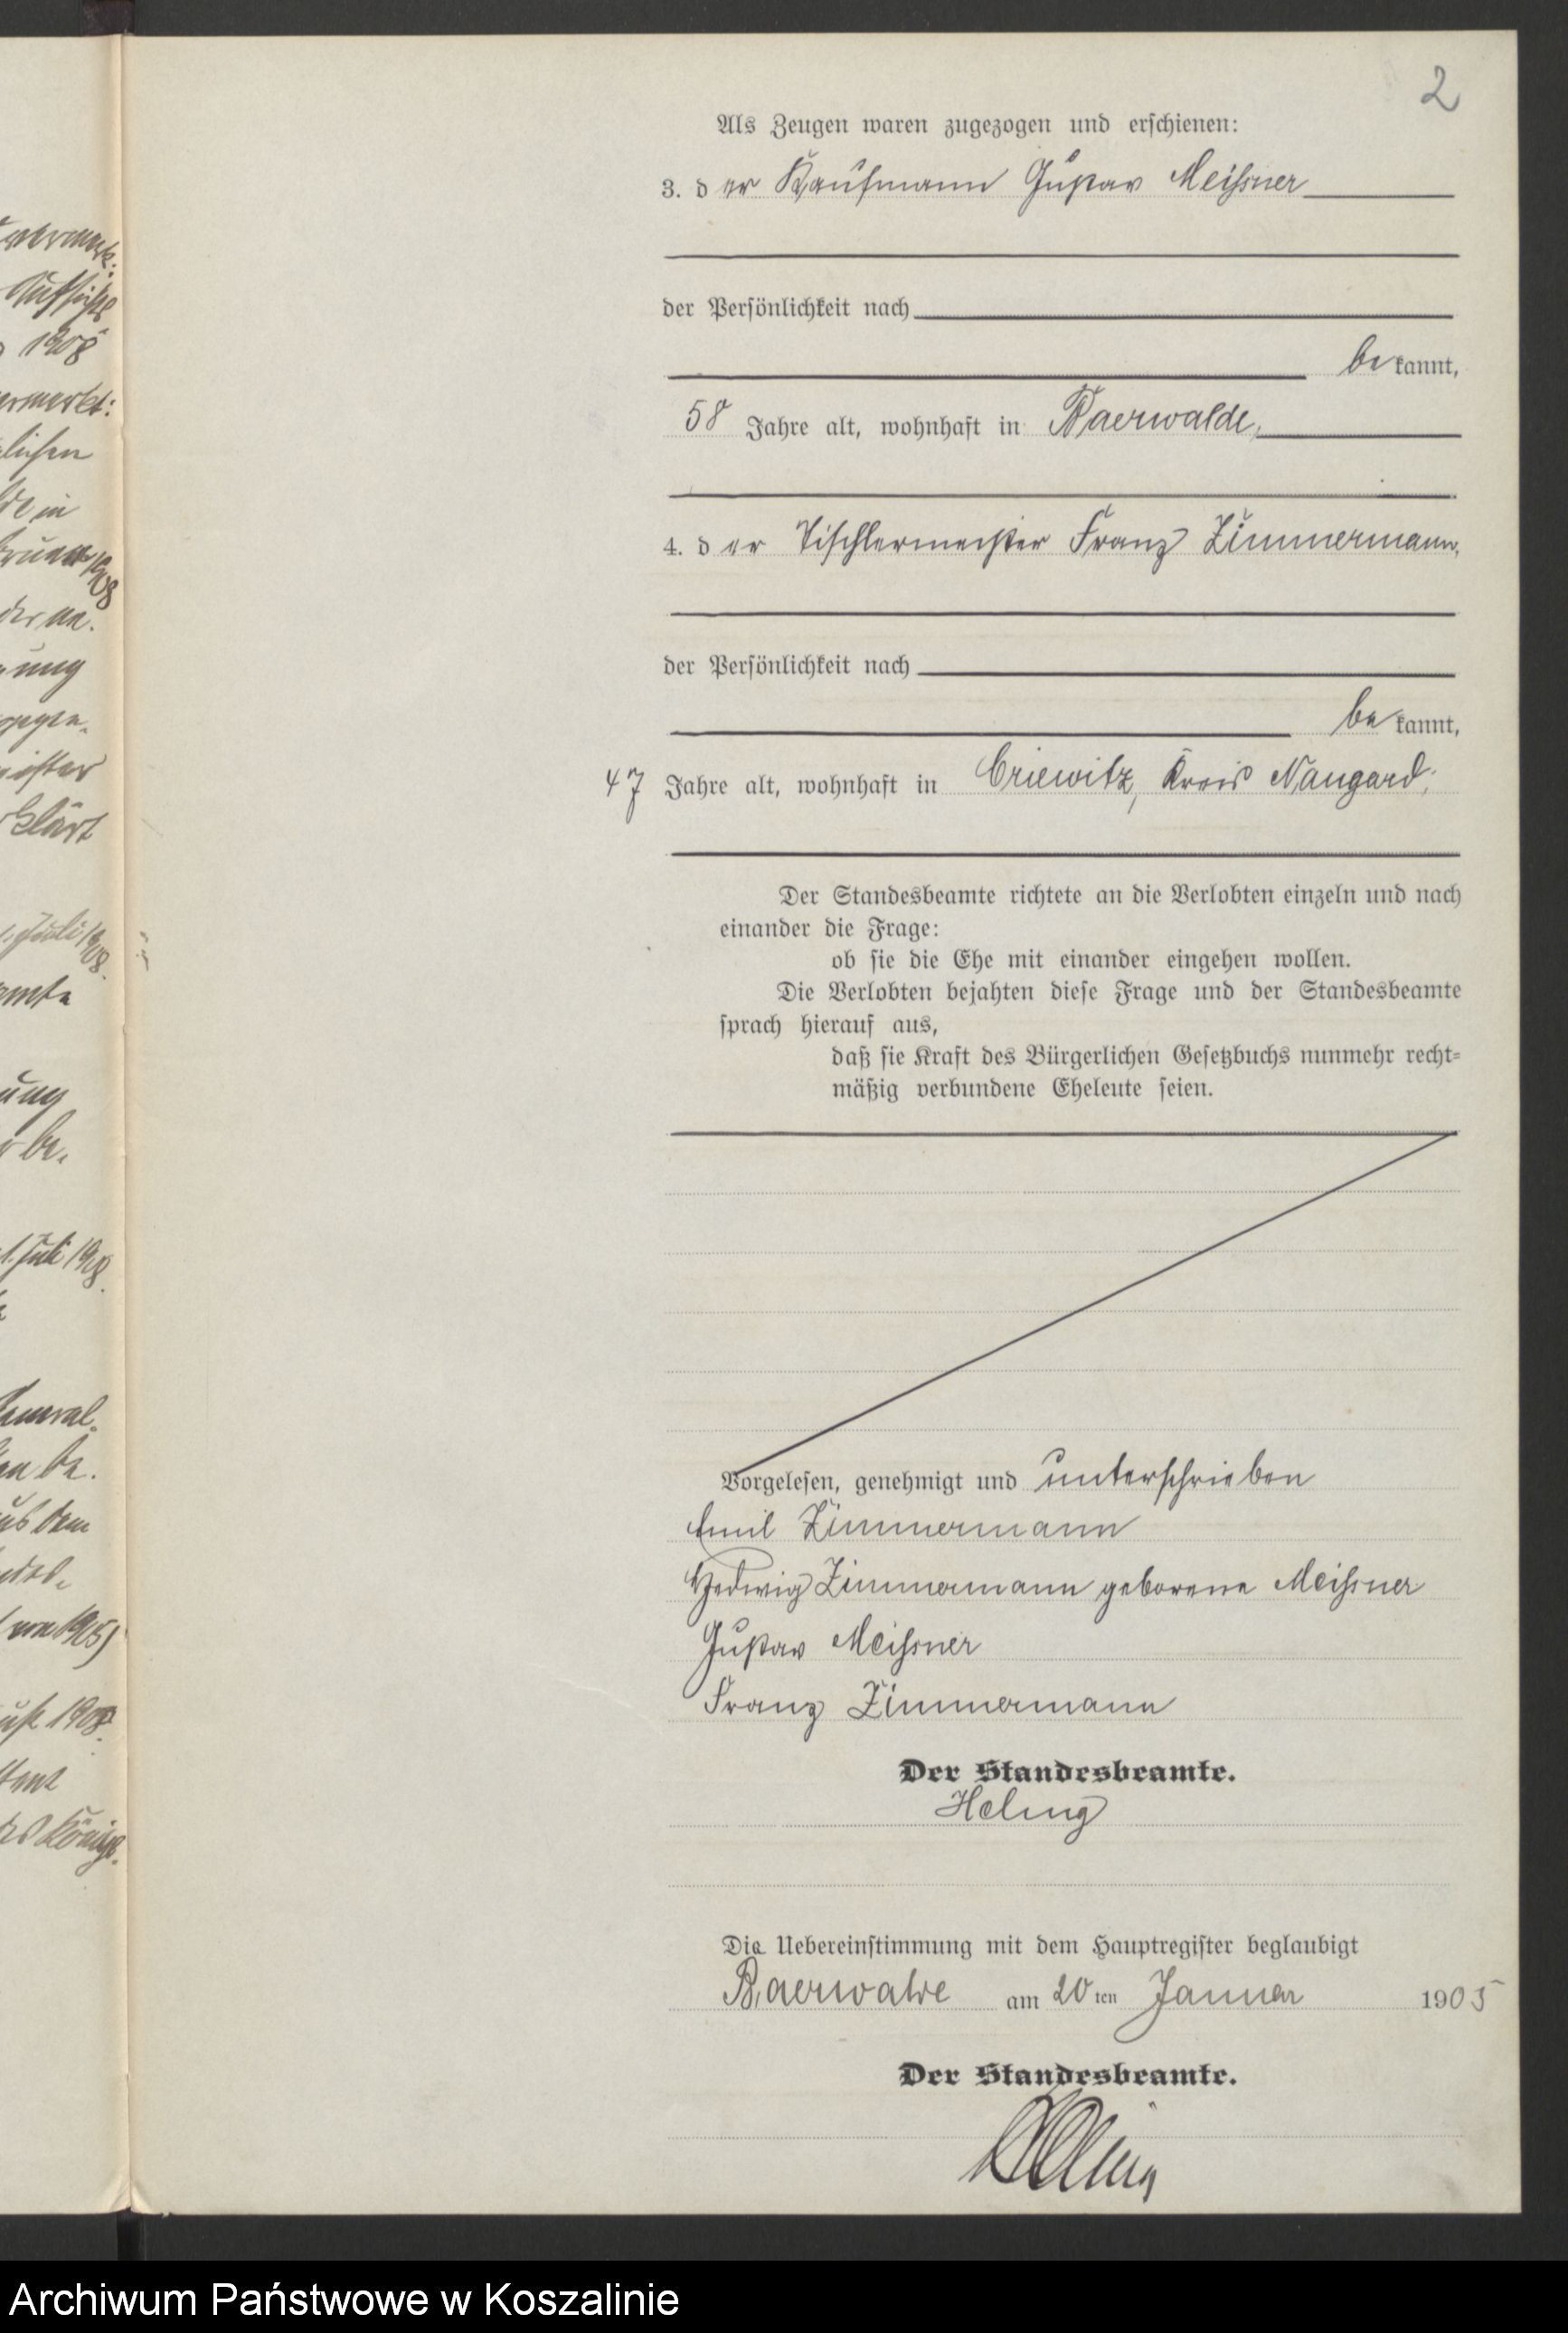 2
Als Zeugen waren zugezogen und erschienen:
3. der Kaufmann Gustav Meißner
der Persönlichkeit nach
bekannt,
58 Jahre alt, wohnhaft in Baerwalde,
4. der Tischlermeister Franz Zimmermann,
der Persönlichkeit nach
bekannt,
47 Jahre alt, wohnhaft in Criewitz, Kreis Naugard.
Der Standesbeamte richtete an die Verlobten einzeln und nach
einander die Frage:
ob sie die Ehe mit einander eingehen wollen.
Die Verlobten bejahten diese Frage und der Standesbeamte
sprach hierauf aus,
daß sie Kraft des Bürgerlichen Gesetzbuchs nunmehr recht-
mäßig verbundene Eheleute seien.
Vorgelesen, genehmigt und unterschrieben
Emil Zimmermann
Hedwig Zimmermann geborene Meißner
Gustav Meißner
Franz Zimmermann
Der Standesbeamte.
Heling
Die Uebereinstimmung mit dem Hauptregister beglaubigt
Baerwalde am 20ten Januar 1905
Der Standesbeamte.
Heling
1908
ermerkt:
lichen
de in
1908
ung
klärt
1. Juli 1908
amte
ung
be.
1. Juli 1908.
General-
aus dem
von 1905)
1908.
Königl.
Archiwum Państwowe w Koszalinie